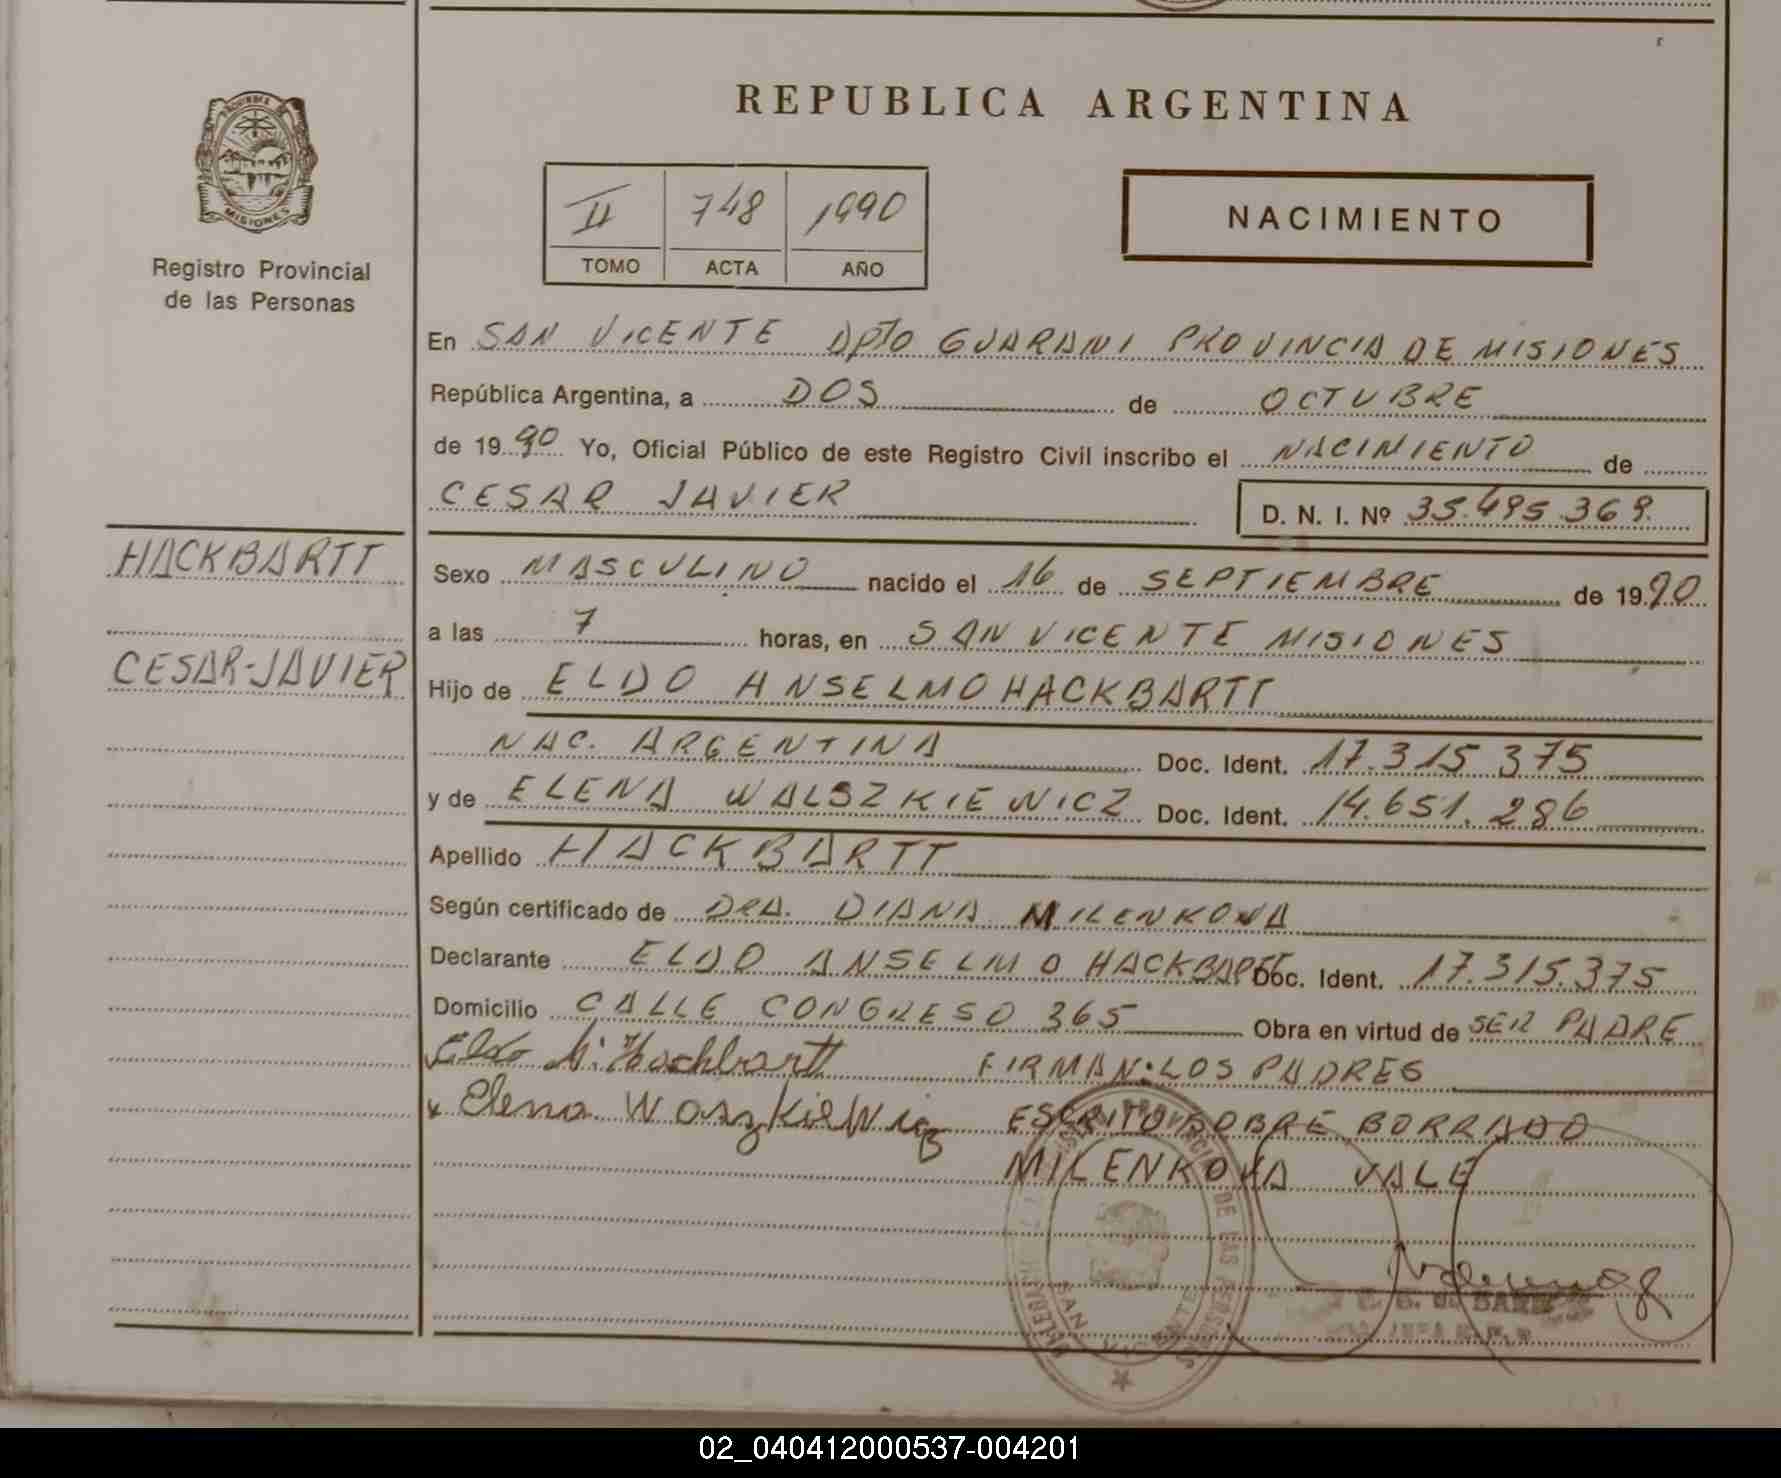 REPUBLICA ARGENTINA
MISIONES
Registro Provincial
de las Personas
II 748 1990
TOMO ACTA AÑO
NACIMIENTO
En SAN VICENTE DPTO GUARANI PROVINCIA DE MISIONES
República Argentina, a DOS de OCTUBRE
de 1990 Yo, Oficial Público de este Registro Civil inscribo el NACIMIENTO de
CESAR JAVIER D. N. I. Nº 35.495.369.
HACKBARTT
CESAR-JAVIER
Sexo MASCULINO nacido el 16 de SEPTIEMBRE de 1990
a las 7 horas, en SAN VICENTE MISIONES
Hijo de ELDO ANSELMO HACKBARTT
NAC. ARGENTINA Doc. Ident. 17.315.375
y de ELENA WALSZKIEWICZ Doc. Ident. 14.651.286
Apellido HACKBARTT
Según certificado de DRA. DIANA MILENKOVA
Declarante ELDO ANSELMO HACKBARTT Doc. Ident. 17.315.375
Domicilio CALLE CONGRESO 365 Obra en virtud de SER PADRE
Eldo A. Hackbartt FIRMAN: LOS PADRES
x Elena Woszkiewicz ESCRITO SOBRE BORRADO
MILENKOVA VALE
SAN VICENTE
02_040412000537-004201